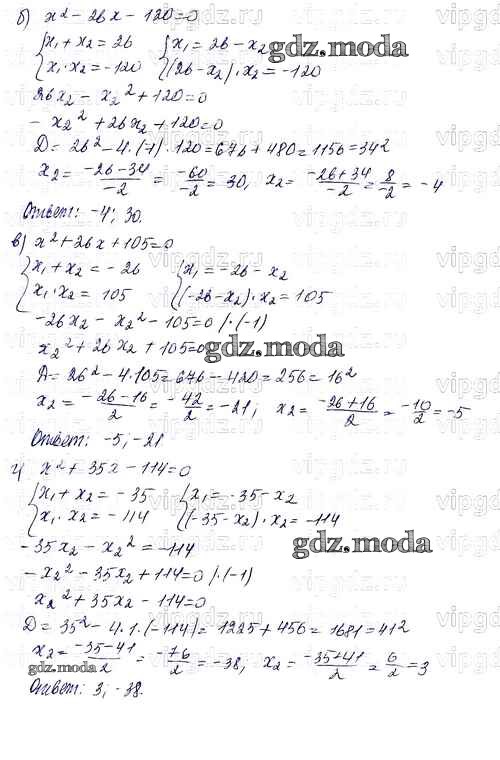 б) x² - 26x - 120 = 0
{x₁ + x₂ = 26 {x₁ = 26 - x₂
{x₁ · x₂ = -120 {(26 - x₂) · x₂ = -120
gdz.moda
26x₂ - x₂² + 120 = 0
- x₂² + 26x₂ + 120 = 0
D = 26² - 4 · (-1) · 120 = 676 + 480 = 1156 = 34²
x₂ = (-26 - 34)/(-2) = (-60)/(-2) = 30, x₂ = (-26 + 34)/(-2) = 8/(-2) = -4
Ответ: -4; 30.
в) x² + 26x + 105 = 0
{x₁ + x₂ = -26 {x₁ = -26 - x₂
{x₁ · x₂ = 105 {(-26 - x₂) · x₂ = 105
-26x₂ - x₂² - 105 = 0 | · (-1)
x₂² + 26x₂ + 105 = 0
gdz.moda
D = 26² - 4 · 105 = 676 - 420 = 256 = 16²
x₂ = (-26 - 16)/2 = -42/2 = -21; x₂ = (-26 + 16)/2 = -10/2 = -5
Ответ: -5; -21
г) x² + 35x - 114 = 0
{x₁ + x₂ = -35 {x₁ = -35 - x₂
{x₁ · x₂ = -114 {(-35 - x₂) · x₂ = -114
-35x₂ - x₂² = -114
gdz.moda
-x₂² - 35x₂ + 114 = 0 | · (-1)
x₂² + 35x₂ - 114 = 0
D = 35² - 4 · 1 · (-114) = 1225 + 456 = 1681 = 41²
x₂ = (-35 - 41)/2 = -76/2 = -38, x₂ = (-35 + 41)/2 = 6/2 = 3
gdz.moda
Ответ: 3; -38.